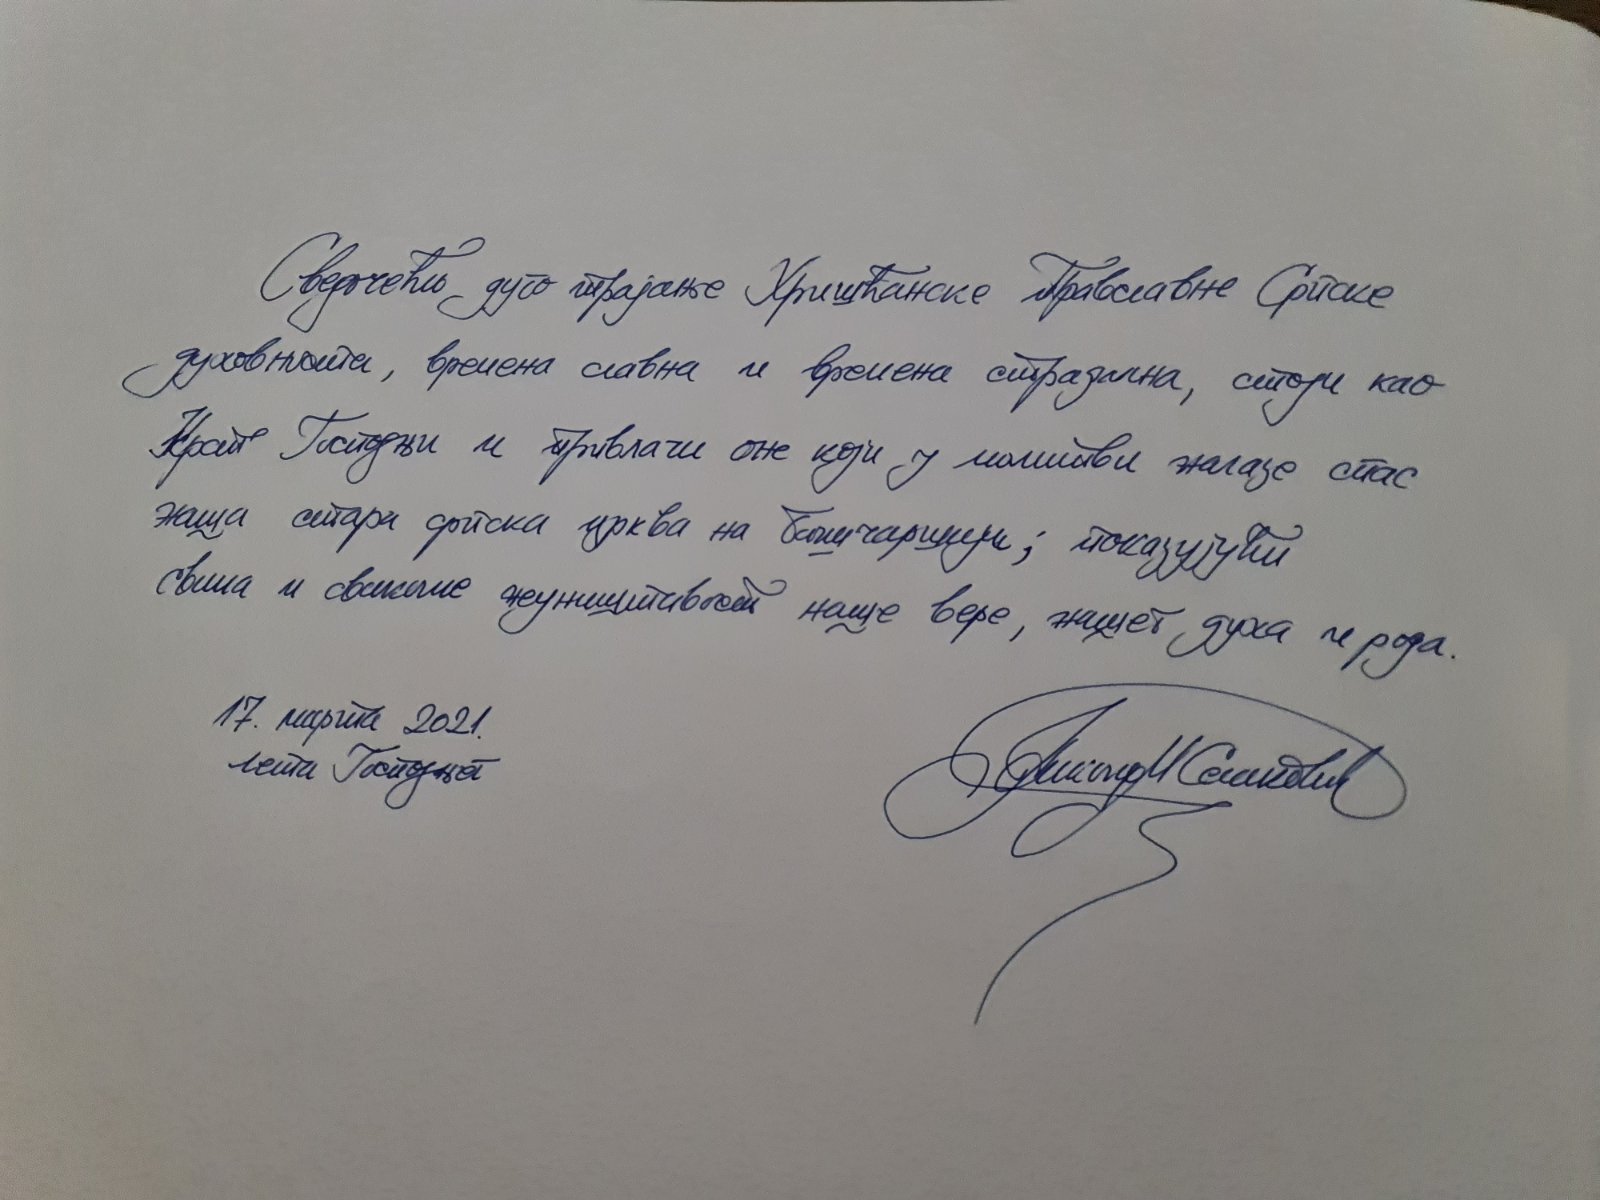 Сведочећи дуго трајање Хришћанске Православне Српске
духовности, времена славна и времена страдална, стоји као
Крст Господњи и привлачи оне који у молитви налазе спас
наша стара српска црква на Башчаршији; показујући
свима и свакоме неуништивост наше вере, нашег духа и рода.
17. марта 2021.
лета Господњег
Селаковић